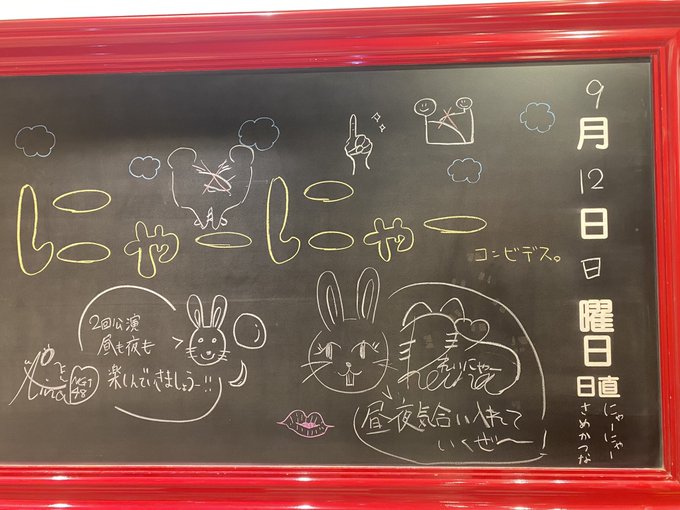 9月12日日曜日
日直
にゃーにゃー
さめかつな
にゃーにゃー
コンビデス。
2回公演
昼も夜も
楽しんでいきましょう!!
NGT
48
れいにゃー
昼夜気合い入れて
いくぜ〜